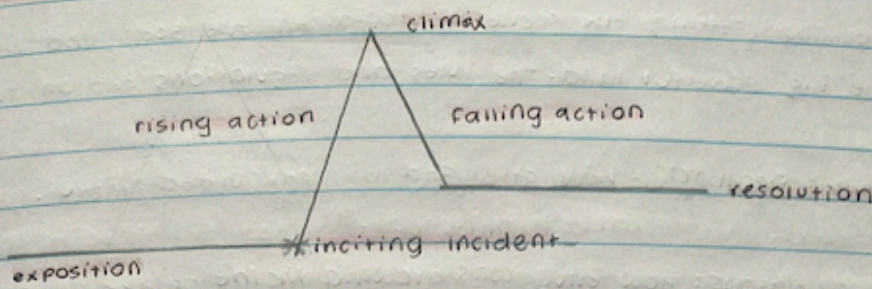 climax
rising action
falling action
resolution
inciting incident
exposition